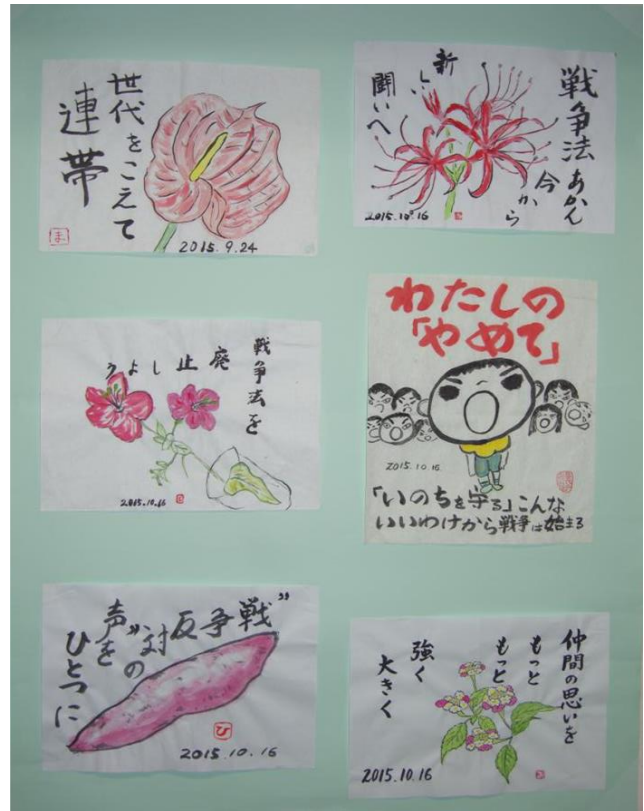 世代をこえて
連帯
ま
2015.9.24
戦争法あかん
今から
新しい
闘いへ
2015.10.16
戦争法を
廃止しよう
2015.10.16
わたしの
「やめて」
2015.10.16
「いのちを守る」こんな
いいわけから戦争は始まる
"戦争反対"の
声を
ひとつに
ひ
2015.10.16
仲間の思いを
もっと
もっと
強く
大きく
2015.10.16